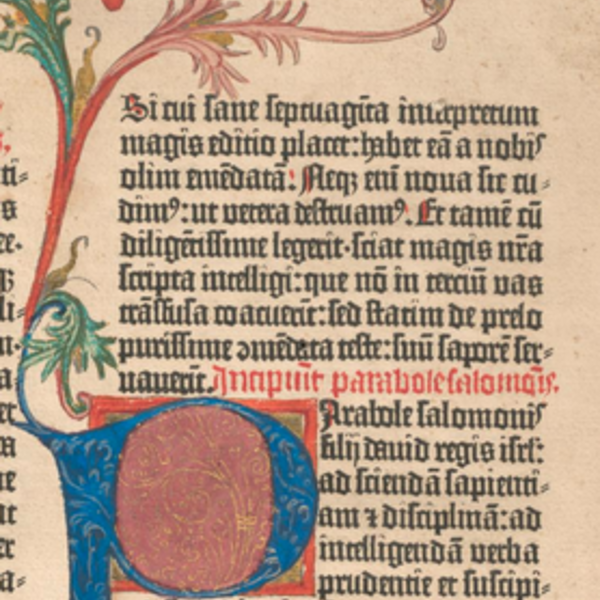 s,
ti⸗
s
ee.
qꝫ
li⸗
u⸗
a
et
a
ne
nt
er
a⸗
Si cui sane septuagīta interpretum
magis editio placet: habet eā a nobis
olim emēdatā. Neqꝫ eni noua sic cu⸗
dimꝰ: ut vetera destruamꝰ. Et tamē cū
diligētissime legerit·sciat magis nr̄a
scripta intelligi: que nō in terciū vas
trāsfusa coacuerīt: sed statim de prelo
purissime ꝯmēdata teste: suū saporē ser⸗
uauerīt. Incipiūt parabole salomōis.
PArabole salomonis
filij dauid regis isrl̄:
ad sciendā sapienti⸗
am ⁊ disciplinā: ad
intelligendā verba
prudentie et suscipi⸗